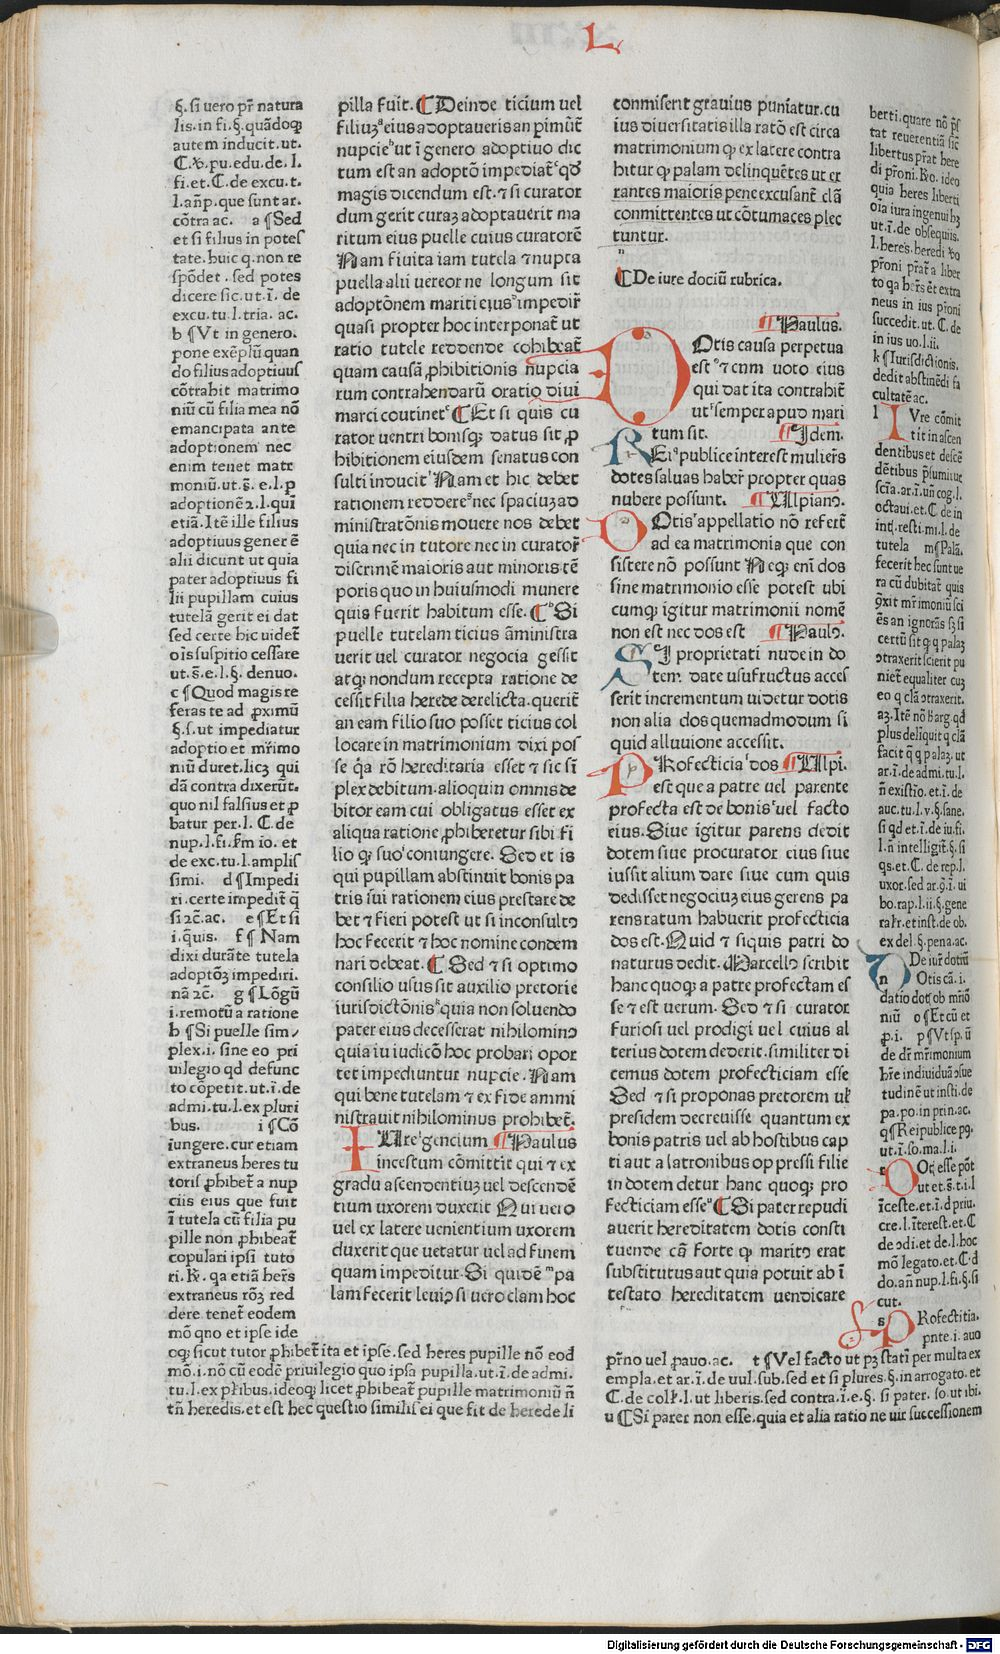 L
§. si uero pr̄ natura
lis. in fi. §. quādoqꝫ
autem inducit. ut.
C. de. pu. edu. de. l.
fi. et. C. de excu. t.
l. an̄p. que sunt ar.
cōtra ac. a ¶ Sed
et si filius in potes
tate. huic q. non re
spōdet. sed potes
dicere sic. ut. ī. de
excu. tu. l. tria. ac.
b ¶ Vt in genero.
pone exēplū quan
do filius adoptiuus
cōtrahit matrimo
niū cū filia mea nō
emancipata ante
adoptionem nec
enim tenet matr
moniū. ut. s̄. e. l. p
adoptionē 2. l. qui
etiā. Itē ille filius
adoptiuus gener ē
alii dicunt ut quia
pater adoptiuus fi
lii pupillam cuius
tutelā gerit ei dat
sed certe hic uidet̄
oīs suspitio cessare
ut. s̄. e. l. §. denuo.
c ¶ Quod magis re
feras te ad ꝓximū
§. s. ut impediatur
adoptio et mr̄imo
niū duret. licꝫ qui
dā contra dixerūt.
quo nil falsius et ꝓ
batur per. l. C. de
nup. l. fi. fm io. et
de exc. tu. l. amplis
simi. d ¶ Impedi
ri. certe impedit q̄
si 2c̄. ac. e ¶ Et si
i. quis. f ¶ Nam
dixi durāte tutela
adoptōꝫ impediri.
nā 2c̄. g ¶ Lōgū
i. remotū a ratione
h ¶ Si puelle sim
plex. i. sine eo pri
uilegio qd defunc
to cōpetit. ut. ī. de
admi. tu. l. ex pluri
bus. i ¶ Cō
iungere. cur etiam
extraneus heres tu
toris ꝓhibet̄ a nup
ciis eius que fuit
ī tutela cū filia pu
pille non ꝓhibeat̄
copulari ipsi tuto
ri. R̄. qa etiā her̄s
extraneus rōꝫ red
dere tenet̄ eodem
mō qno et ipse ide
oqꝫ sicut tutor ꝓhibet̄ ita et ipse. sed heres pupille nō eod
mō. i. nō cū eodē priuilegio quo ipsa pupilla. ut. ī. de admi.
tu. l. ex pl̄ribus. ideoqꝫ licet ꝓhibeat̄ pupille matrimoniū n̄
tn̄ heredis. et est hec questio similis ei que fit de herede li
pilla fuit. ¶ Deinde ticium uel
filiuꝫ eius adoptaueris an pimūt̄
nupcie ut ī genero adoptiuo dic
tum est an adoptō impediat̄ qd
magis dicendum est. et si curator
dum gerit curaꝫ adoptauerit ma
ritum eius puelle cuius curatorē
Nam fiuita iam tutela et nupta
puella alii uereor ne longum sit
adoptōnem mariti ejus impedir̄
quasi propter hoc interponat̄ ut
ratio tutele reddende cohibeat̄
quam causā ꝓhibitionis nupcia
rum contrahendarū oratio diui
marci coutinet ¶ Et si quis cu
rator uentri bonisqꝫ datus sit ꝓ
hibitionem eiusdem senatus con
sulti inducit Nam et hic debet
rationem reddere nec spaciuꝫ ad
ministratōnis mouere nos debet
quia nec in tutore nec in curator̄
discrimē maioris aut minoris tē
poris quo in huiusmodi munere
quis fuerit habitum esse. ¶ Si
puelle tutelam ticius āministra
uerit uel curator negocia gessit
atqꝫ nondum recepta ratione de
cessit filia herede derelicta. querit̄
an eam filio suo posset ticius col
locare in matrimonium dixi pos
se q̄a rō hereditaria esset et sic sī
plex debitum. alioquin omnis de
bitor eam cui obligatus esset ex
aliqua ratione ꝓhiberetur sibi fi
lio qꝫ suo coniungere. Sed et is
qui pupillam abstinuit bonis pa
tris sui rationem eius prestare de
bet et fieri potest ut si inconsulto
hoc fecerit et hoc nomine condem
nari debeat. ¶ Sed et si optimo
consilio usus sit auxilio pretorie
iurisdictōnis quia non soluendo
pater eius decesserat nihilomino
quia iu iudicō hoc probari opor
tet impediuntur nupcie. Nam
qui bene tutelam et ex fide ammi
nistrauit nihilominus prohibet̄.
IUre gencium ¶ Paulus
incestum cōmittit qui et ex
gradu ascendentiuꝫ uel descendē
tium uxorem duxerit Qui uero
uel ex latere uenientium uxorem
duxerit que uetatur uel ad finem
quam impeditur. Si quidē pa
lam fecerit leuiꝰ si uero clam hoc
conmiserit grauius puniatur. cu
ius diuersitatis illa ratō est circa
matrimonium qꝫ ex latere contra
hitur qꝫ palam delinquētes ut er
rantes maioris pene excusant̄ clā
conmittentes ut cōtumaces plec
tuntur.
¶ De iure dociū rubrica.
¶ Paulus.
DOtis causa perpetua
est et cnm uoto eius
qui dat ita contrahit̄
ut semper apud mari
tum sit. ¶ Idem.
REi publice interest mulier̄s
dotes saluas haber̄ propter quas
nubere possunt. ¶ Ulpianꝰ.
DOtis appellatio nō refert̄
ad ea matrimonia que con
sistere nō possunt Neqꝫ enī dos
sine matrimonio esse potest ubi
cumqꝫ igitur matrimonii nomē
non est nec dos est ¶ Paulꝰ.
SI proprietati nude in do
tem date usufructus acces
serit incrementum uidetur dotis
non alia dos quemadmodum si
quid alluuione accessit.
PRofecticia dos ¶ Ulpi.
est que a patre uel parente
profecta est de bonis uel facto
eius. Siue igitur parens dedit
dotem siue procurator eius siue
iussit alium dare siue cum quis
dedisset negociuꝫ eius gerens pa
rens ratum habuerit profecticia
dos est. Quid et si quis patri do
naturus dedit. Marcellꝰ scribit
hanc quoqꝫ a patre profectam es
se et est uerum. Sed et si curator
furiosi uel prodigi uel cuius al
terius dotem dederit. similiter di
cemus dotem profecticiam esse
Sed et si proponas pretorem ul̄
presidem decreuisse quantum ex
bonis patris uel ab hostibus cap
ti aut a latronibus op pressi filie
in dotem detur hanc quoqꝫ pro
fecticiam esse ¶ Si pater repudi
auerit hereditatem dotis consti
tuende cā forte qꝫ maritꝰ erat
substitutus aut quia potuit ab ī
testato hereditatem uendicare
berti. quare nō pr̄
tat reuerentiā sic̄
libertus pr̄at here
di pr̄oni. R̄o. ideo
quia heres liberti
oīa iura ingenui hꝫ
ut. ī. de obsequis.
l. heres. heredi uo
pr̄oni pr̄at̄ a liber
to qa her̄s ēt extra
neus in ius pr̄oni
succedit. ut. C. de
in ius uo. l. ii.
k ¶ Iurisdictionis.
dedit abstinēdi fa
cultatē ac.
l IVre cōmit
tit in ascen
dentibus et descē
dētibus p̄sumitur
scīa. ar. ī. un̄ cog. l.
octaui. et. C. de in
int̄. resti. mi. l. de
tutela m ¶ Palā.
fecerit hec sunt ue
ra cū dubitat̄ quis
ꝯxit mr̄imoniū sci
ēs an ignorās sꝫ si
certū sit qꝫ q palaꝫ
ꝯtraxerit scierit pu
niet̄ equaliter cuꝫ
eo q clā ꝯtraxerit.
aꝫ. Itē nō h̄ arg. qd
plus deliquit q clā
facit q̄ q palaꝫ. ut
ar. ī. de admi. tu. l.
n̄ existīo. et. ī. de
auc. tu. l. v. §. sane.
si qd et. ī. de iu. fi.
l. n̄ intelligit̄. §. si
qs. et. C. de rep. l.
uxor. sed ar. ꝯ. ī. ui
bo. rap. l. ii. §. gene
ralr̄. et inst. de ob.
ex del §. pena. ac.
De iur̄ dotiū
n Otis cā. i.
datio dot̄ ob mr̄iō
niū o ¶ Et cū et
ꝓ. i. p ¶ Vt sp. ū
de dr̄ mr̄imonium
hr̄e indiuiduā ꝯsue
tudinē ut insti. de
pa. po. in prin. ac.
q ¶ Rei publice pꝯ.
ut. ī. so. ma. l. i.
r DOt̄ esse pōt
ut et. s̄. t. i. l
īceste. et. ī. d priu.
cre. l. īterest. et. C
de ꝯdi. et de. l. hoc
mō legato. et. C. d
do. an̄ nup. l. fi. §. si
cut.
s PRofectitia.
pnte. i. auo
pr̄no uel ꝓauo. ac. t ¶ Vel facto ut pꝫ stati per multa ex
empla. et ar. ī. de uul. sub. sed et si plures. §. in arrogato. et
C. de coll̄. l. ut liberis. sed contra. ī. e. §. si pater. so. ut ibi.
u ¶ Si pater non esse. quia et alia ratio ne uir successionem
Digitalisierung gefördert durch die Deutsche Forschungsgemeinschaft - DFG